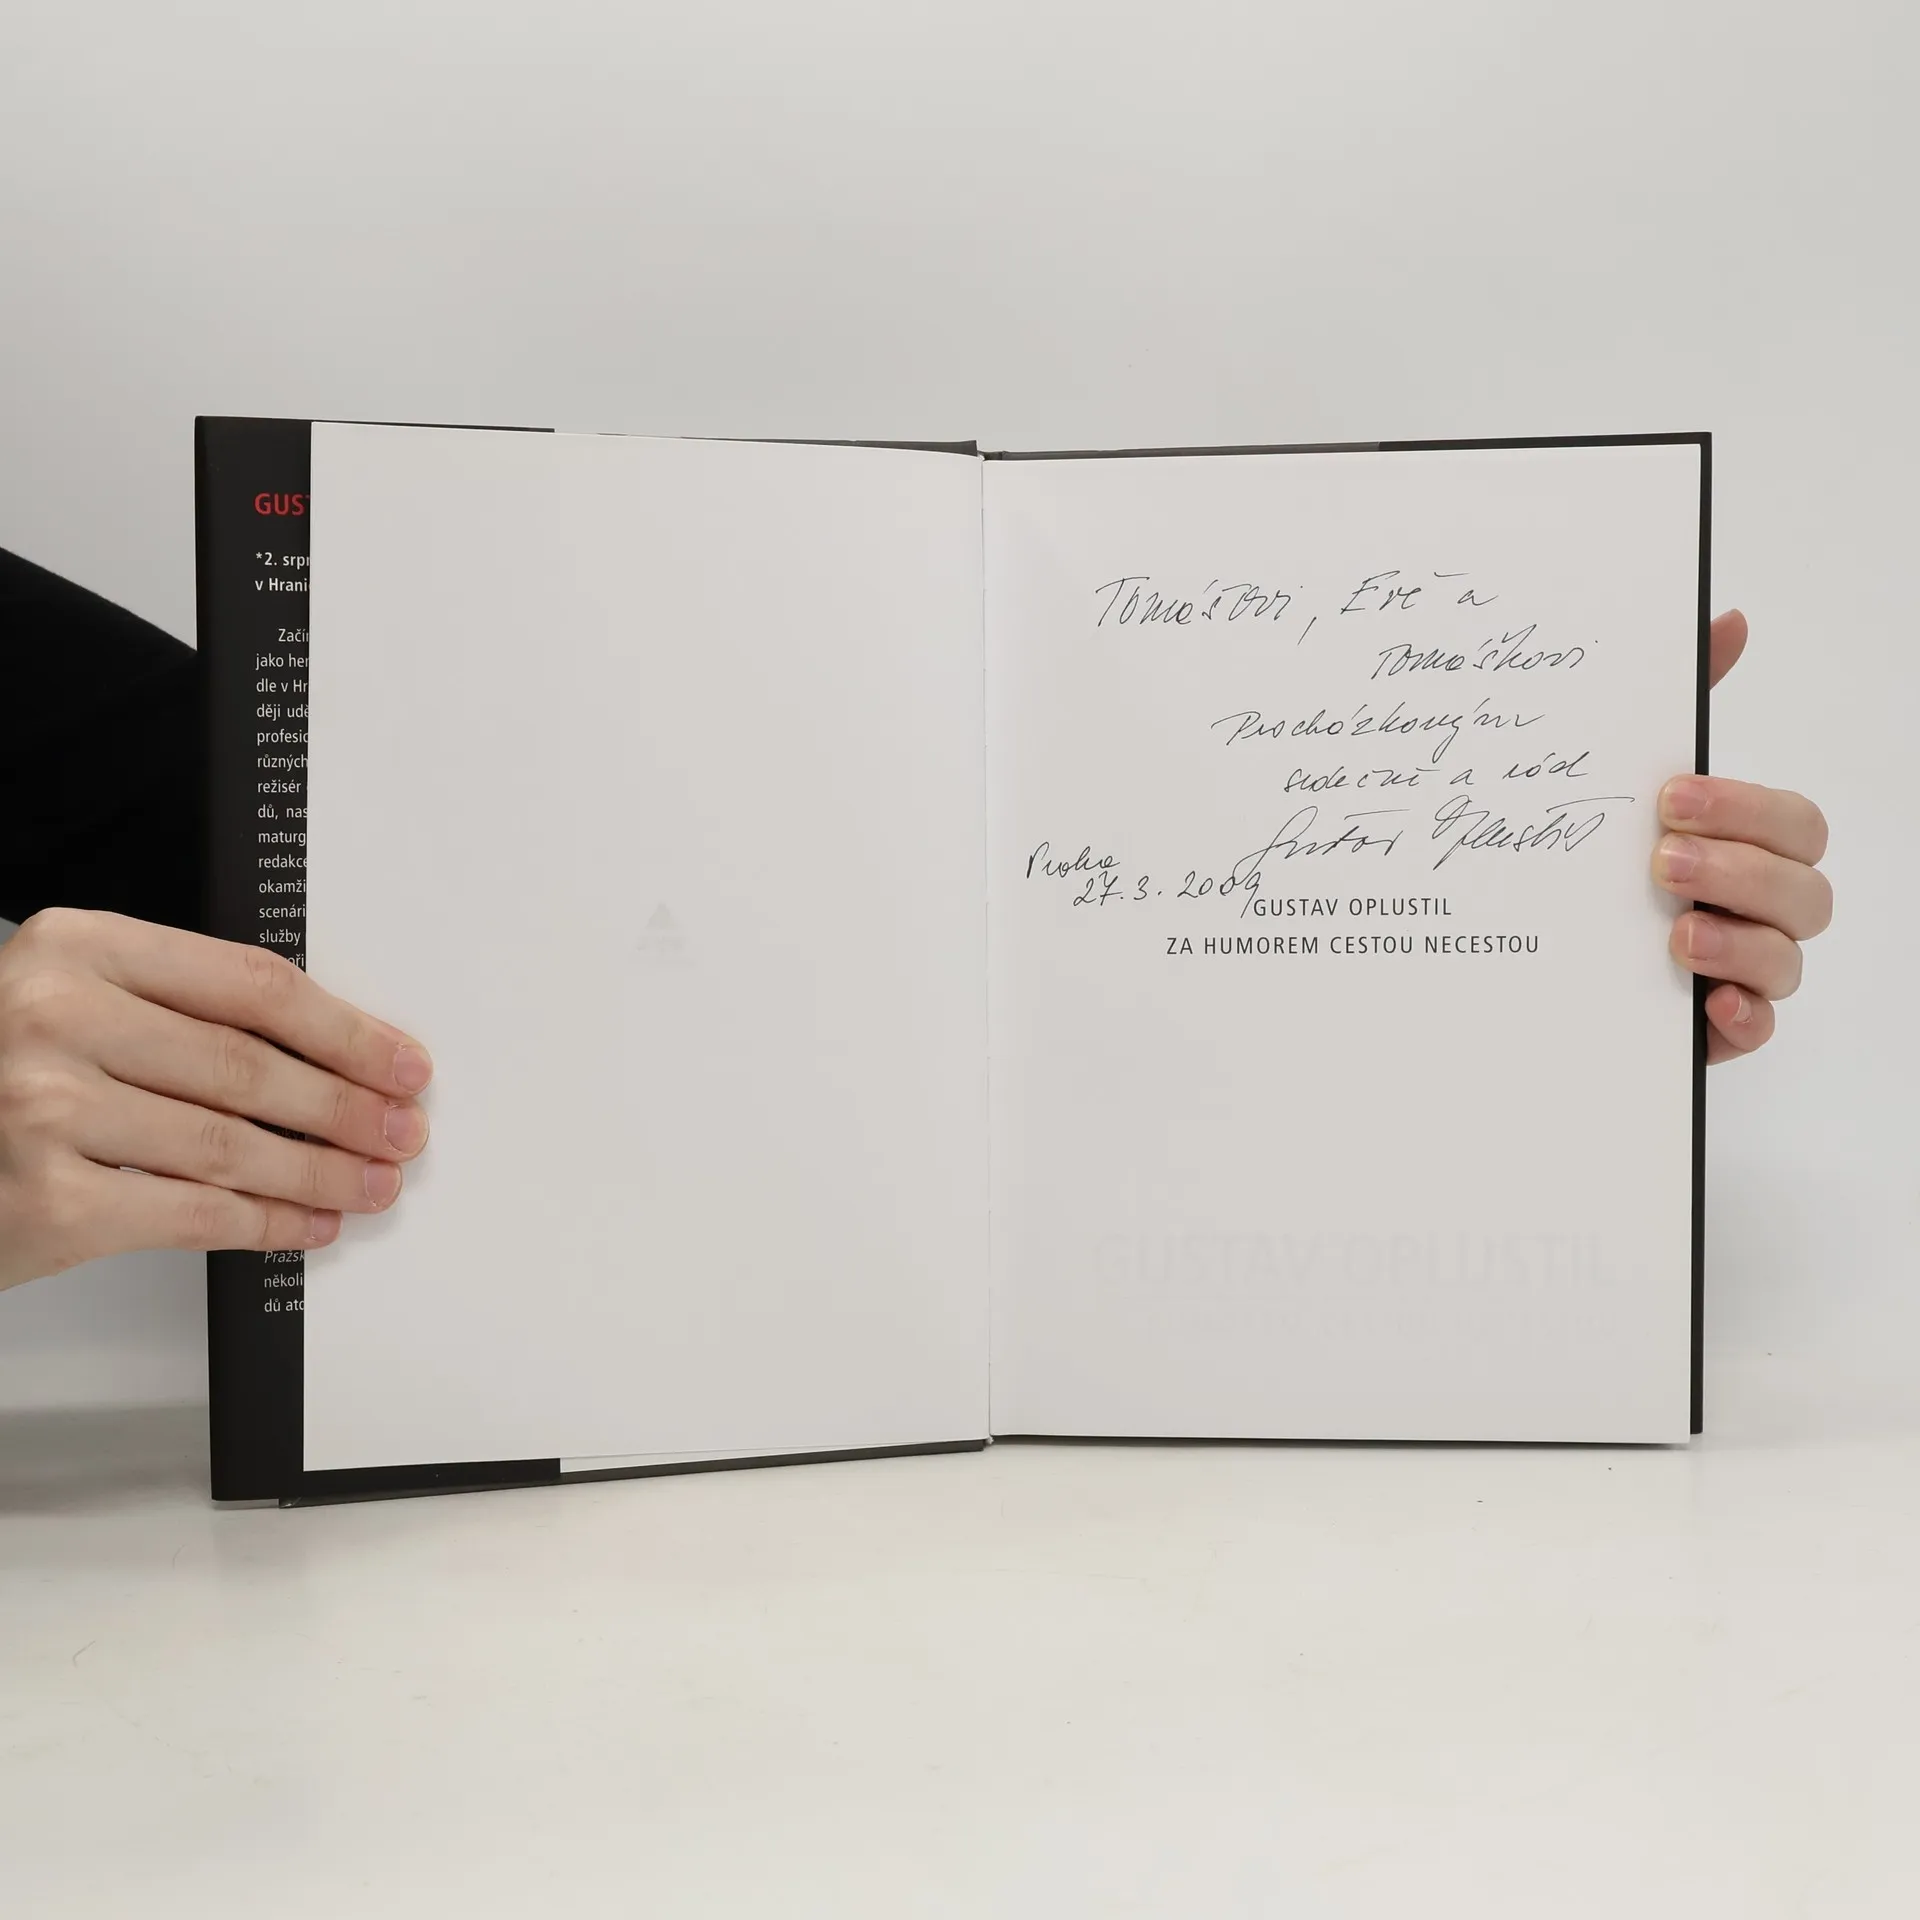 GUS
*2. srpn
v Hranic
Začín
jako her
dle v Hr
ději udě
profesio
různých
režisér
dů, nas
maturg
redakce
okamži
scenári
služby
oři
Pražsk
několi
dů ato
Tomášovi, Evě a
Tomáškovi
Procházkovým
srdečně a rád
Gustav Oplustil
Praha
27. 3. 2009
GUSTAV OPLUSTIL
ZA HUMOREM CESTOU NECESTOU
GUSTAV OPLUSTIL